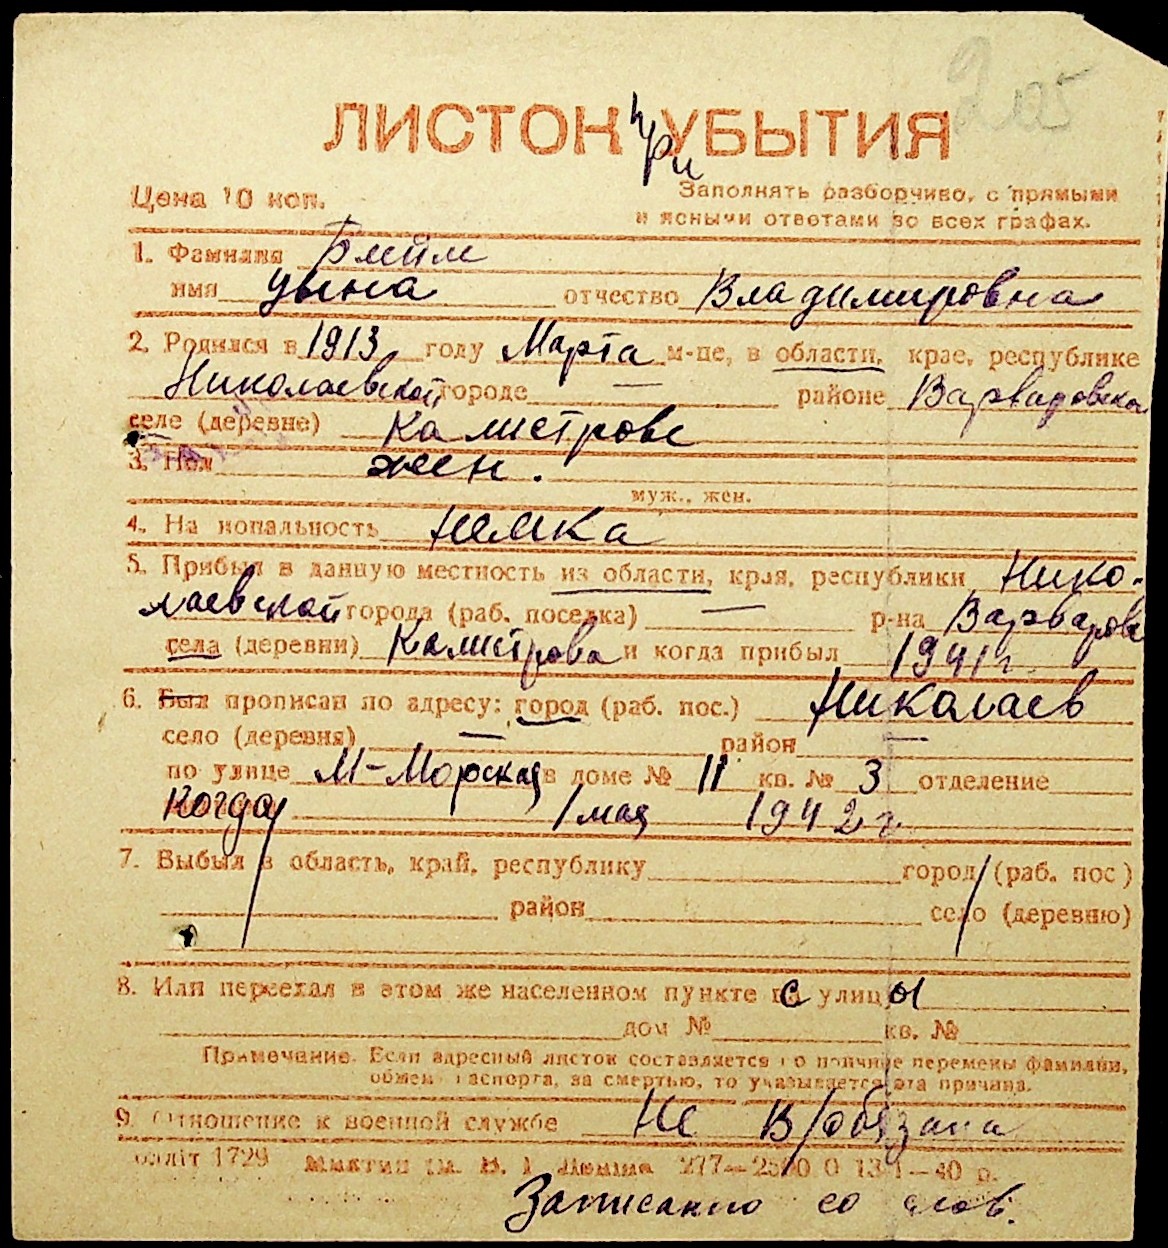 205
ЛИСТОК при УБЫТИЯ
Цена 10 коп.
Заполнять разборчиво, с прямыми
и ясными ответами во всех графах.
1. Фамилия
имя отчество Владимировна
2. Родился в 1913 году Марта м-це, в области, крае, республике
Николаевской городе — районе Варваровском
селе (деревне) Калистрове
3. Пол жен.
муж., жен.
4. Национальность немка
5. Прибыл в данную местность из области, края, республики Нико-
лаевской города (раб. поселка) — р-на Варваров
села (деревни) Калистрова и когда прибыл 1941 г.
6. Был прописан по адресу: город (раб. пос.) Николаев
село (деревня) — район —
по улице М-Морская в доме № 11 кв. № 3 отделение
Когда 1 мая 1942 г.
7. Выбыл в область, край, республику город (раб. пос)
район село (деревню)
8. Или переехал в этом же населенном пункте с улицы
дом № кв. №
Примечание. Если адресный листок составляется по причине перемены фамилии,
обмен паспорта, за смертью, то указывается эта причина.
9. Отношение к военной службе Не В/обязана
облліт 1729 Леніна 277—2500 0 13-1—40 р.
Записанно со слов.